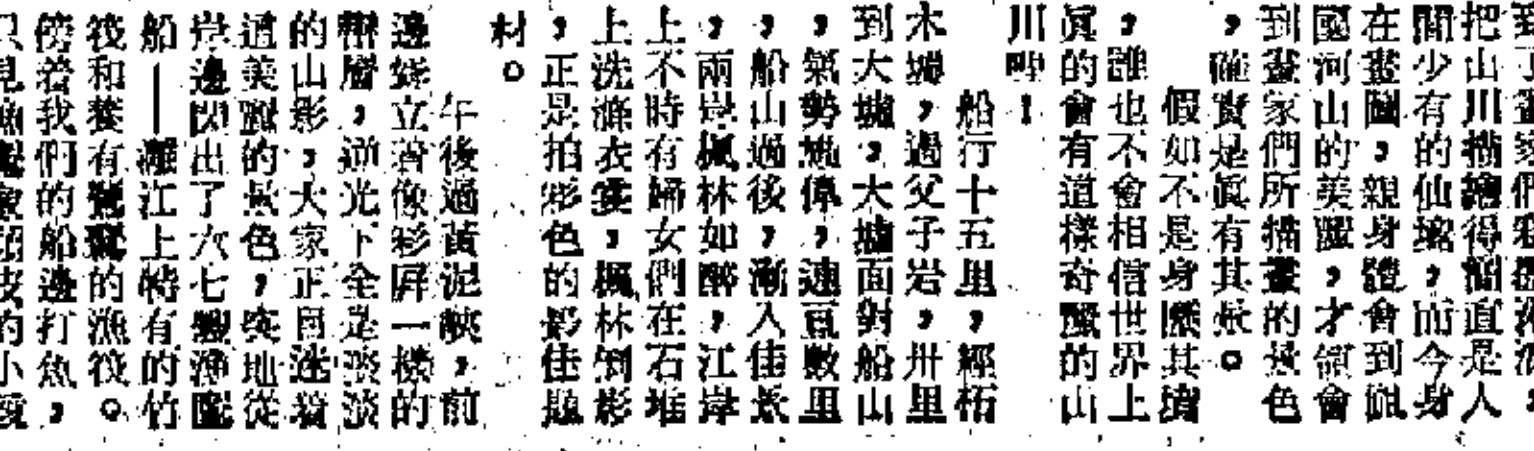 到了畫家們渲
把山川描繪得簡直是人
間少有的仙境，而今身
在畫圖，親身體會到祖
國河山的美麗，才領會
到畫家們所描畫的景色
，確實是眞有其景。
假如不是身歷其境
，誰也不會相信世界上
眞的會有這樣奇麗的山
川哩！
船行十五里，經柘
木墟，過父子岩，卅里
到大墟，大墟面對船山
，氣勢雄偉，連亘數里
，船山過後，漸入佳景
，兩岸楓林如醉，江岸
上不時有婦女們在石堆
上洗滌衣裳，楓林倒影
，正是拍彩色的影佳題
材。
午後過黃泥峽，前
邊聳立着像彩屛一樣的
層，逆光下全是淡淡
的山影，大家正目迷着
這美麗的景色，突地從
岸邊閃出了六七艘漁
船—灕江上特有的竹
筏和養有鸕鶿的漁筏。
傍着我們的船邊打魚，
只見漁的小